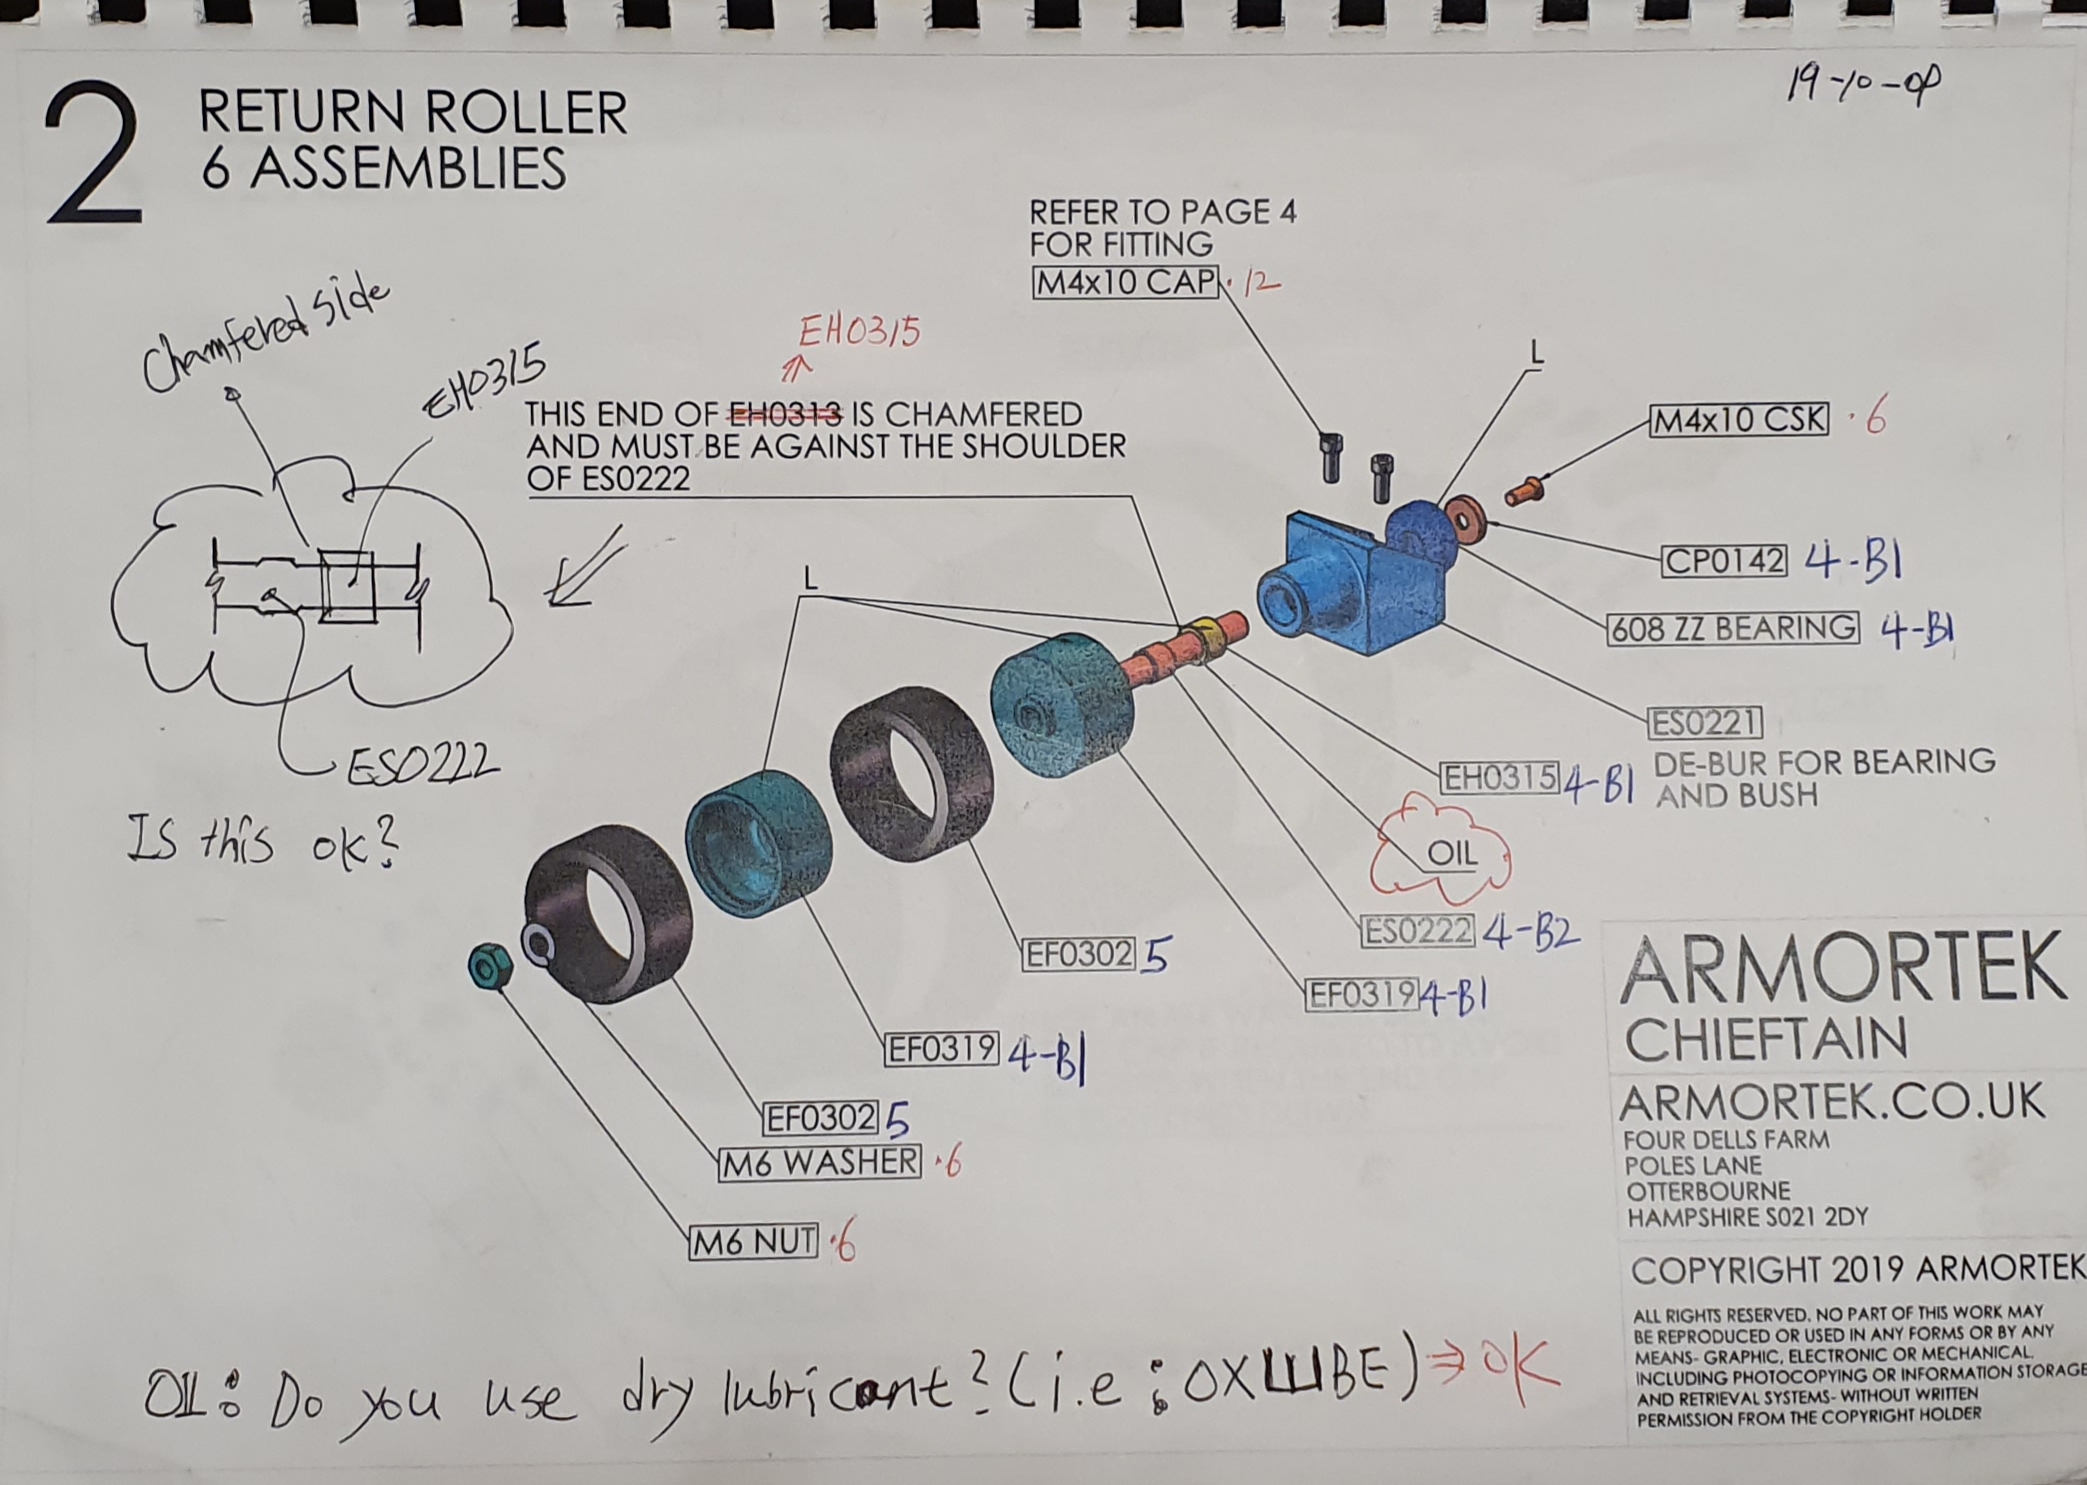 19-10-08
2
RETURN ROLLER
6 ASSEMBLIES
REFER TO PAGE 4
FOR FITTING
M4x10 CAP ·12
Chamfered side
EH0315
EH0315
THIS END OF EH0313 IS CHAMFERED
AND MUST BE AGAINST THE SHOULDER
OF ES0222
L
M4x10 CSK ·6
CP0142 4-B1
608 ZZ BEARING 4-B1
L
ES0221
DE-BUR FOR BEARING
AND BUSH
ES0222
Is this ok?
EH0315 4-B1
OIL
ES0222 4-B2
EF0302 5
EF0319 4-B1
EF0319 4-B1
EF0302 5
M6 WASHER ·6
M6 NUT ·6
ARMORTEK
CHIEFTAIN
ARMORTEK.CO.UK
FOUR DELLS FARM
POLES LANE
OTTERBOURNE
HAMPSHIRE SO21 2DY
COPYRIGHT 2019 ARMORTEK
ALL RIGHTS RESERVED. NO PART OF THIS WORK MAY
BE REPRODUCED OR USED IN ANY FORMS OR BY ANY
MEANS- GRAPHIC, ELECTRONIC OR MECHANICAL.
INCLUDING PHOTOCOPYING OR INFORMATION STORAGE
AND RETRIEVAL SYSTEMS- WITHOUT WRITTEN
PERMISSION FROM THE COPYRIGHT HOLDER
OIL: Do you use dry lubricant? (i.e: ) → OK